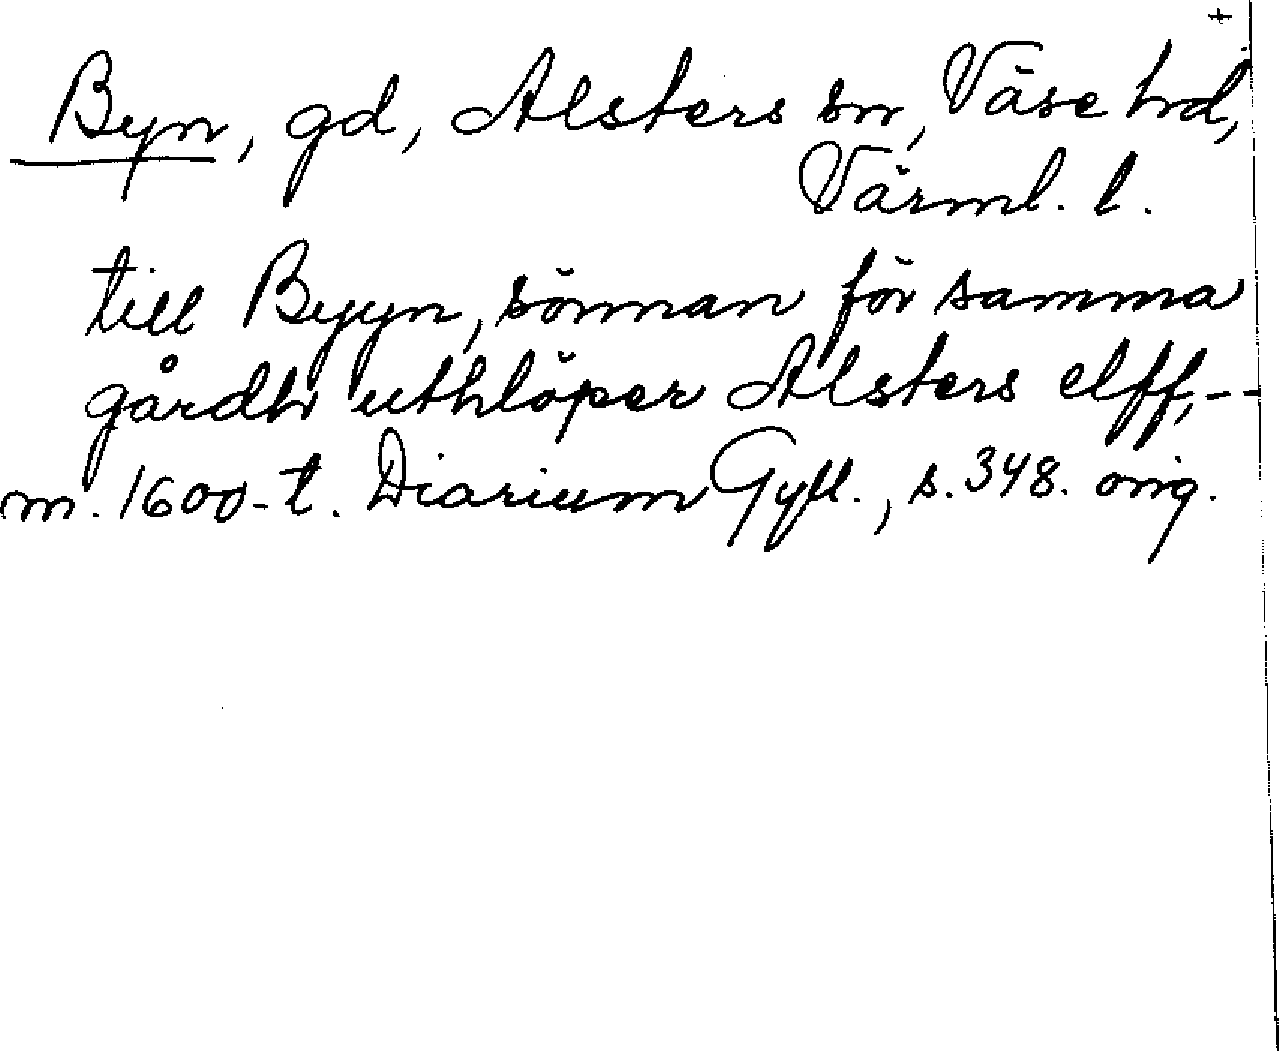 +
Byn, gd, Alsters sn, Väse hd,
Värml. l.
till Byyn, sönnan för samma
gårdh uthlöper Alsters elff, --
m. 1600-t. Diarium Gyll., s. 348. orig.